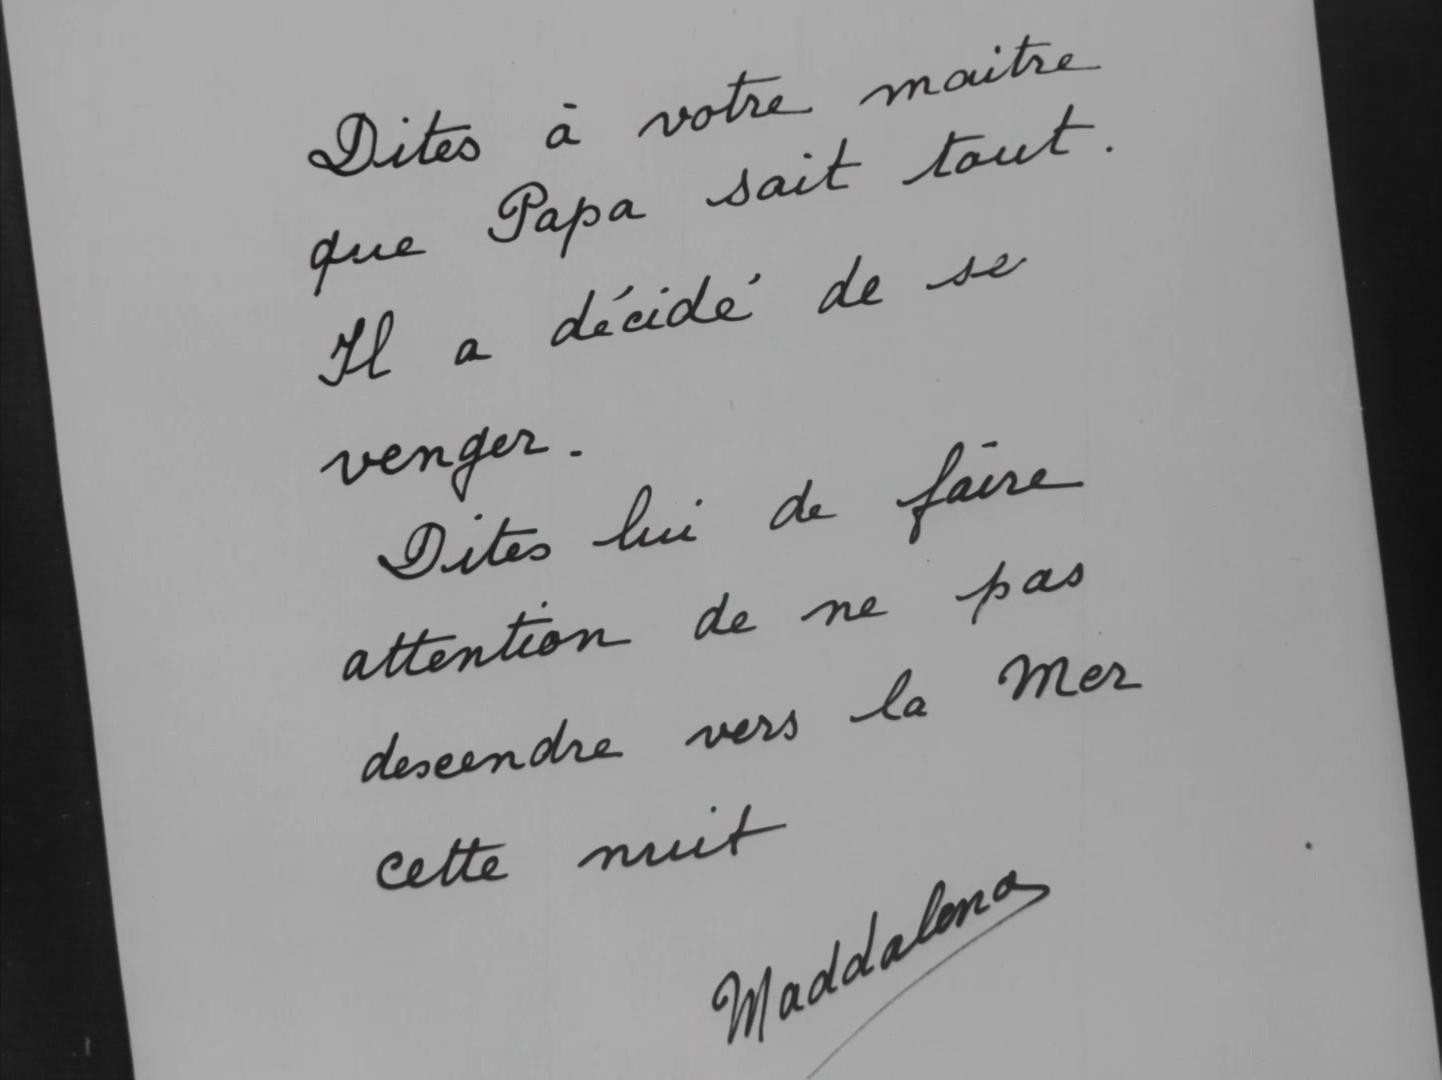 Dites à votre maitre
que Papa sait tout.
Il a décidé de se
venger.
Dites lui de faire
attention de ne pas
descendre vers la Mer
cette nuit
Maddalena